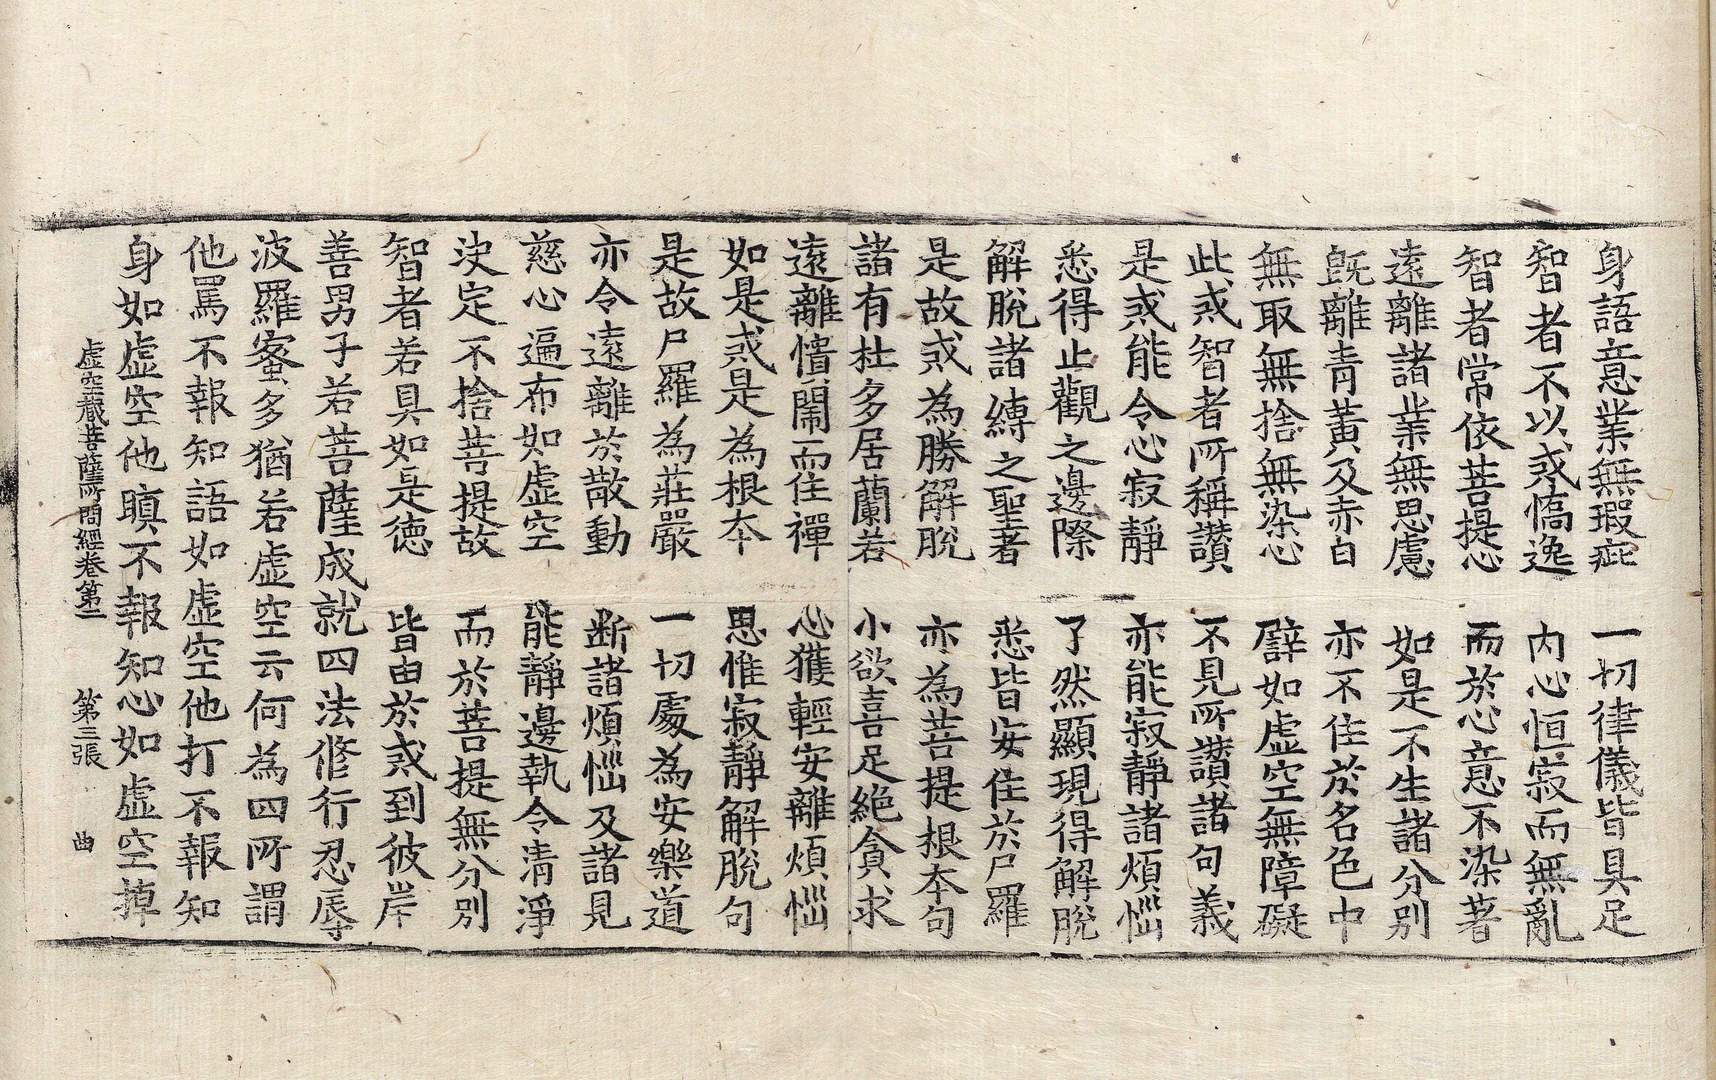 身語意業無瑕疵　一切律儀皆具足
智者不以戒憍逸　內心恒寂而無亂
智者常依菩提心　而於心意不染著
遠離諸業無思慮　如是不生諸分別
旣離青黃及赤白　亦不住於名色中
無取無捨無染心　譬如虛空無障礙
此戒智者所稱讚　不見所讚諸句義
是戒能令心寂靜　亦能寂靜諸煩惱
悉得止觀之邊際　了然顯現得解脫
解脫諸縛之聖者　悉皆安住於尸羅
是故戒為勝解脫　亦為菩提根本句
諸有杜多居蘭若　小欲喜足絕貪求
遠離憒鬧而住禪　心獲輕安離煩惱
如是戒是為根本　思惟寂靜解脫句
是故尸羅為莊嚴　一切處為安樂道
亦令遠離於散動　斷諸煩惱及諸見
慈心遍布如虛空　能靜邊執令清淨
決定不捨菩提故　而於菩提無分別
智者若具如是德　皆由於戒到彼岸
善男子若菩薩成就四法修行忍辱
波羅蜜多猶若虛空云何為四所謂
他罵不報知語如虛空他打不報知
身如虛空他瞋不報知心如虛空掉
虛空藏菩薩所問經卷第二　第三張　曲